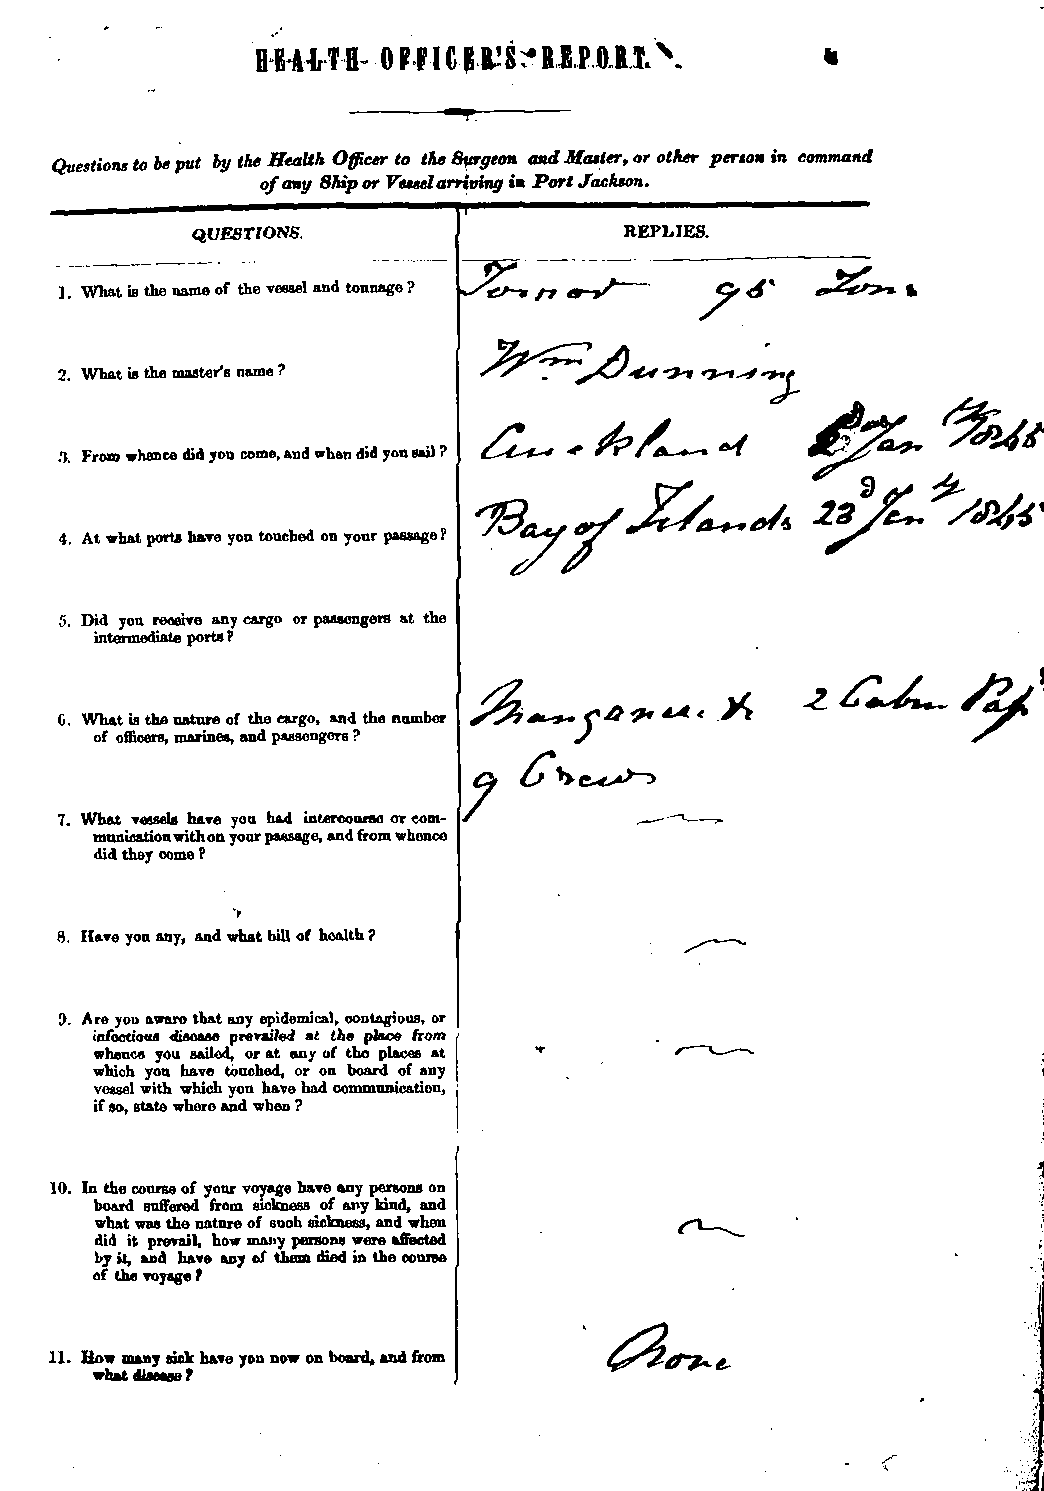 HEALTH OFFICER'S REPORT.
Questions to be put by the Health Officer to the Surgeon and Master, or other person in command
of any Ship or Vessel arriving in Port Jackson.
QUESTIONS. REPLIES.
1. What is the name of the vessel and tonnage? 95 Tons
2. What is the master's name? Wm Dunning
3. From whence did you come, and when did you sail? Auckland Jany 1845
4. At what ports have you touched on your passage? Bay of Islands 23d Jany 1845
5. Did you receive any cargo or passengers at the
intermediate ports?
6. What is the nature of the cargo, and the number Manganese &c 2 Cabin
of officers, marines, and passengers?
9 Crew
7. What vessels have you had intercourse or com-
munication with on your passage, and from whence
did they come?
8. Have you any, and what bill of health?
9. Are you aware that any epidemical, contagious, or
infectious disease prevailed at the place from
whence you sailed, or at any of the places at
which you have touched, or on board of any
vessel with which you have had communication,
if so, state where and when?
10. In the course of your voyage have any persons on
board suffered from sickness of any kind, and
what was the nature of such sickness, and when
did it prevail, how many persons were affected
by it, and have any of them died in the course
of the voyage?
11. How many sick have you now on board, and from None
what disease?